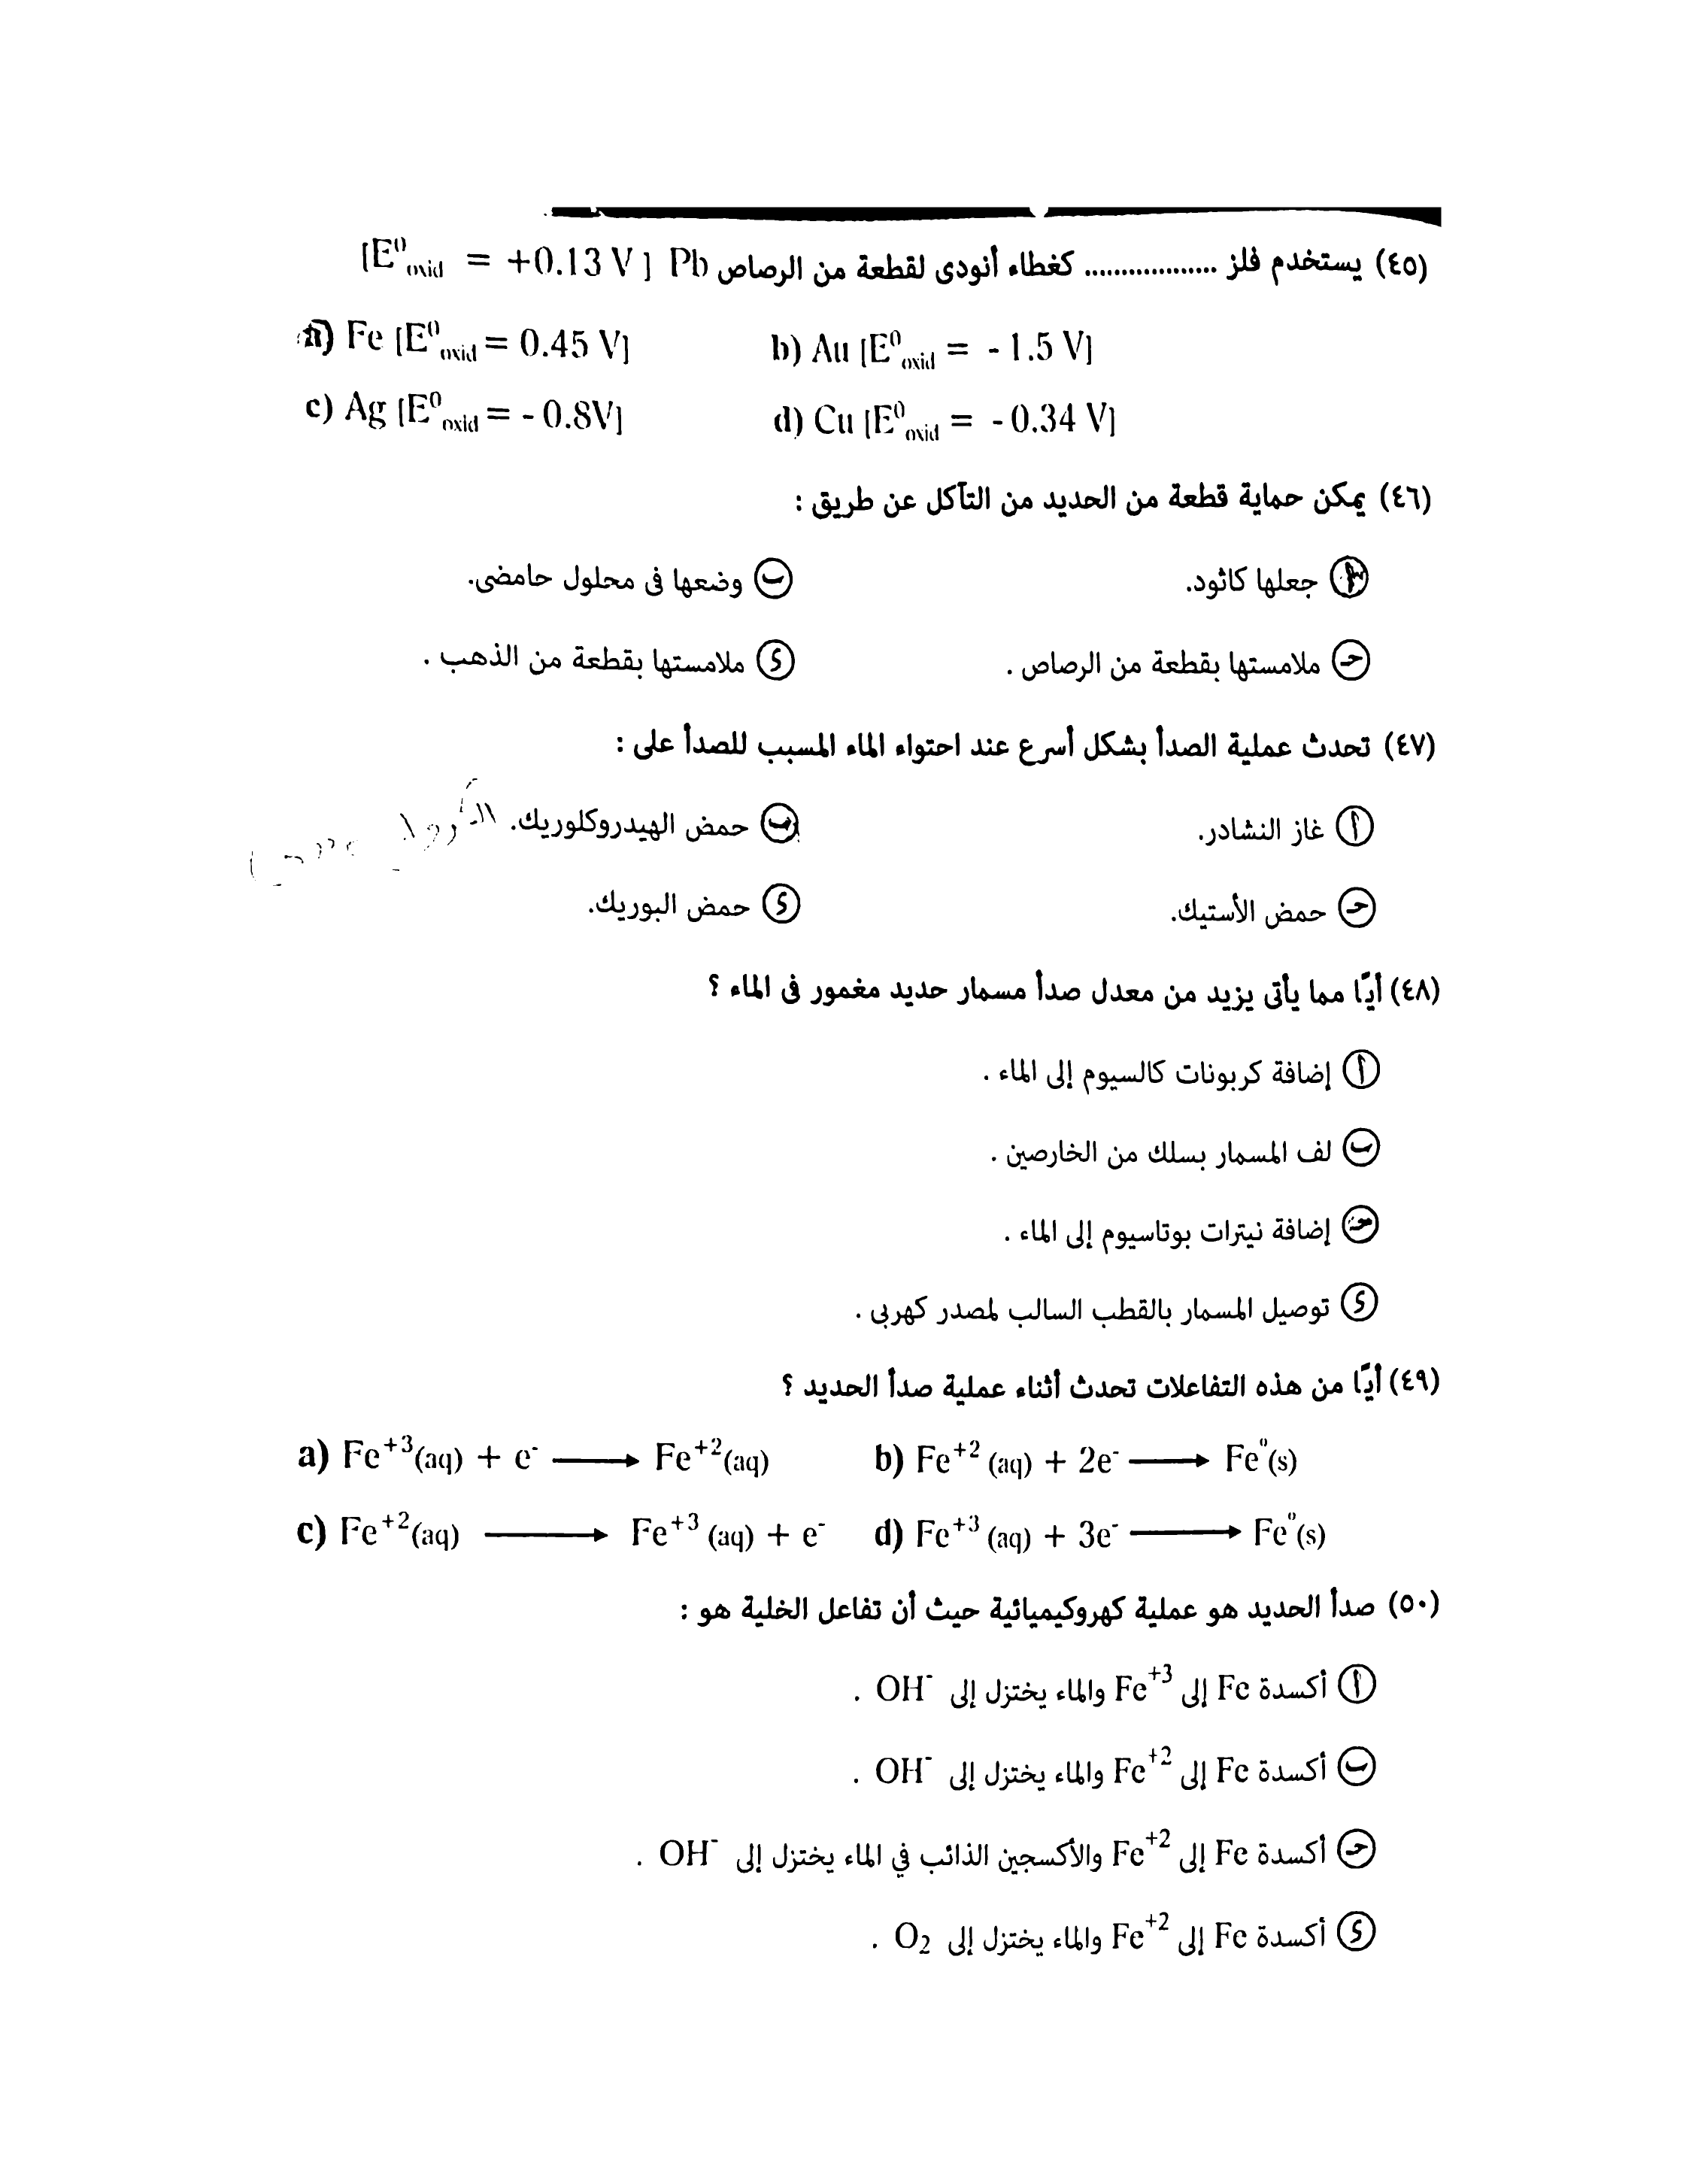 (٤٥) يستخدم فلز .................. كغطاء أنودى لقطعة من الرصاص Pb [E⁰oxid = +0.13 V]
a) Fe [E⁰oxid = 0.45 V] b) Au [E⁰oxid = - 1.5 V]
c) Ag [E⁰oxid = - 0.8V] d) Cu [E⁰oxid = - 0.34 V]
(٤٦) يمكن حماية قطعة من الحديد من التآكل عن طريق :
أ جعلها كاثود. ب وضعها فى محلول حامضى.
حـ ملامستها بقطعة من الرصاص . د ملامستها بقطعة من الذهب .
(٤٧) تحدث عملية الصدأ بشكل أسرع عند احتواء الماء المسبب للصدأ على :
أ غاز النشادر. ب حمض الهيدروكلوريك.
حـ حمض الأستيك. د حمض البوريك.
(٤٨) أيًا مما يأتى يزيد من معدل صدأ مسمار حديد مغمور فى الماء ؟
أ إضافة كربونات كالسيوم إلى الماء .
ب لف المسمار بسلك من الخارصين .
حـ إضافة نيترات بوتاسيوم إلى الماء .
د توصيل المسمار بالقطب السالب لمصدر كهربى .
(٤٩) أيًا من هذه التفاعلات تحدث أثناء عملية صدأ الحديد ؟
a) Fe⁺³(aq) + e⁻ ⟶ Fe⁺²(aq) b) Fe⁺² (aq) + 2e⁻ ⟶ Fe⁰(s)
c) Fe⁺²(aq) ⟶ Fe⁺³ (aq) + e⁻ d) Fe⁺³ (aq) + 3e⁻ ⟶ Fe⁰(s)
(٥٠) صدأ الحديد هو عملية كهروكيميائية حيث أن تفاعل الخلية هو :
أ أكسدة Fe إلى Fe⁺³ والماء يختزل إلى OH⁻ .
ب أكسدة Fe إلى Fe⁺² والماء يختزل إلى OH⁻ .
حـ أكسدة Fe إلى Fe⁺² والأكسجين الذائب في الماء يختزل إلى OH⁻ .
د أكسدة Fe إلى Fe⁺² والماء يختزل إلى O₂ .